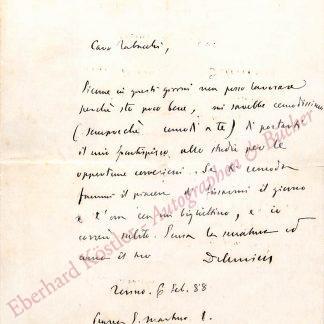 Caro Tabacchi,
Siccome in questi giorni non posso lavorare
perchè sto poco bene, mi sarebbe comodissimo
(sempreché comodi a te) di portarti
il mio allo studio per le
opportune correzioni. Se ti comoda
fammi il piacer di fissarmi il giorno
e l'ora con un bigliettino, e io
correrò subito. Scusa la seccatura ed
ama il tuo DeAmicis
Torino. 6 feb. 88
Piazza S. Martino 1.
Eberhard Köstler - Autographen & Bücher